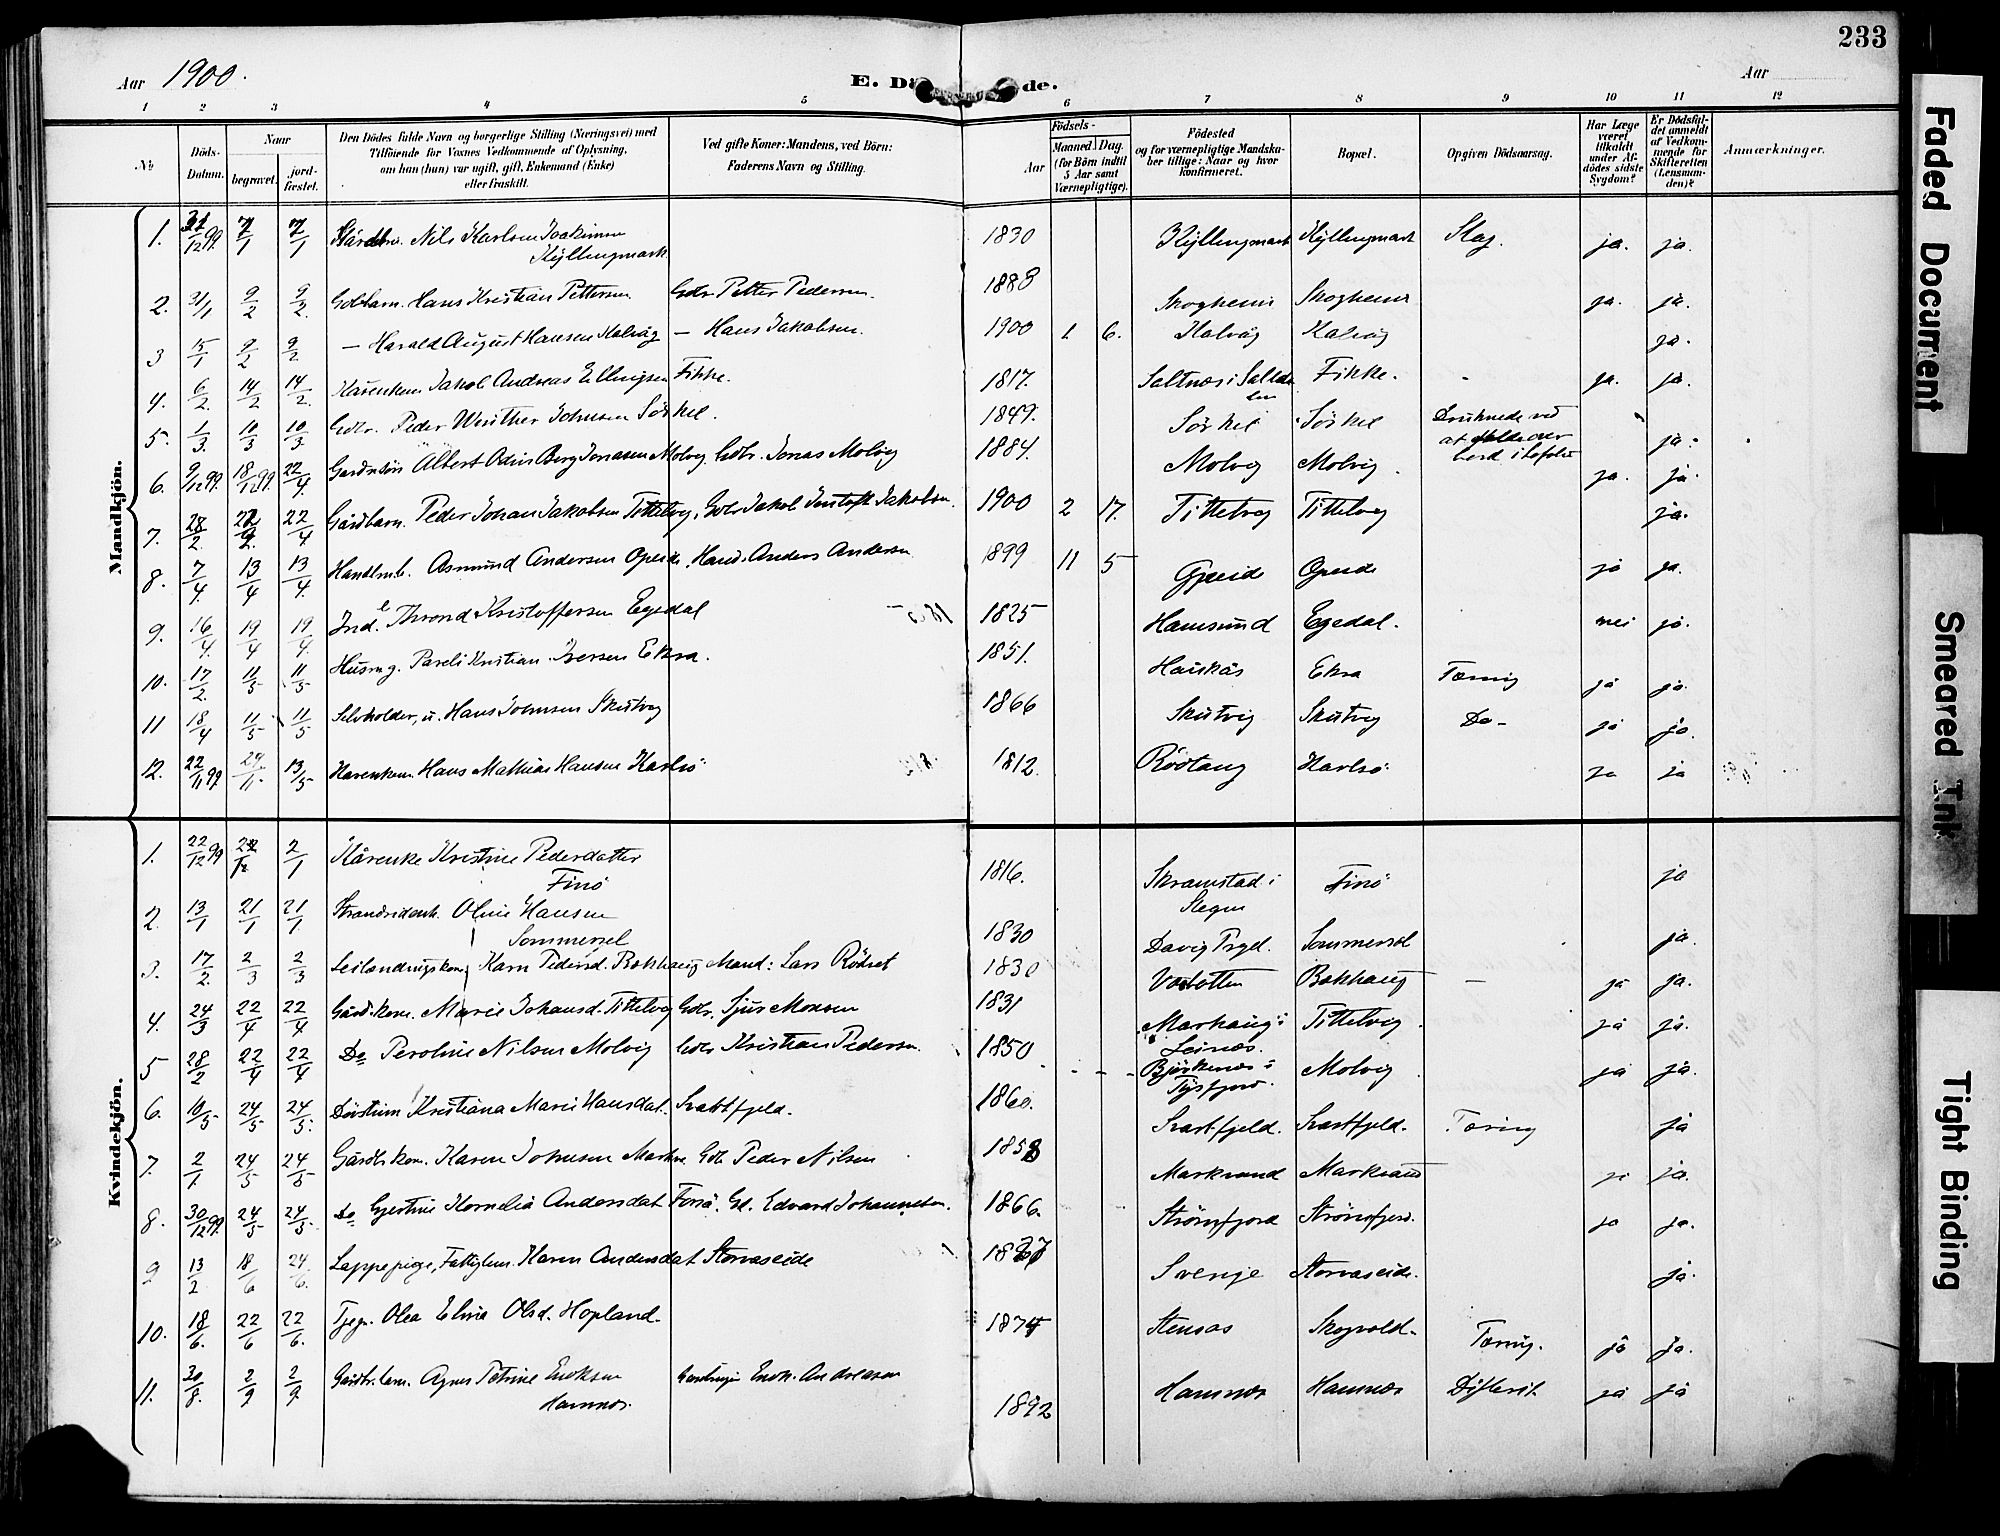 233
Aar 1900.
E. Dö de.
Aar
1 2 3 4 5 6 7 8 9 10 11 12
No
Döds-Datum.
Naar
begravet.
jord-fæstet.
Den Dödes fulde Navn og borgerlige Stilling (Næringsvei) med
Tilföiende for Voxnes Vedkommende af Oplysning,
om han (hun) var ugift, gift, Enkemand (Enke)
eller fraskilt.
Ved gifte Koner: Mandens, ved Börn:
Faderens Navn og Stilling.
Födsels-
Aar
Maaned. Dag.
(for Börn indtil
5 Aar samt
Værnepligtige).
Födested
og for værnepligtige Mandska-
ber tillige: Naar og hvor
konfirmeret.
Bopæl.
Opgiven Dödsaarsag.
Har Læge
været
tilkaldt
under Af-
dödes sidste
Sygdom?
Er Dödsfal-
det anmeldt
af Vedkom-
mende for
Skifteretten
(Lensman-
den)?
Anmærkninger.
Mandkjön.
1. 31/12 99. 7/1 7/1 Nils Karlsen Joakimsen 1830 Kyllingmark Kyllingmark Slag. ja. ja.
Kyllingmark.
2. 31/1 9/2 9/2 Gdbarn. Hans Kristian Pettersen Gdbr. Petter Pedersen. 1888 Skogheim Skogheim ja. ja.
3 15/1 9/2 9/2 — Harald August Hansen Kalvåg — Hans Jakobsen. 1900 1 6. Kalvåg Kalvåg ja.
4. 6/2. 14/2 14/2. Kårenkem. Jakob Andreas Ellingsen Fikke. 1817. Saltnæs i Saltda- Fikke. ja. ja.
len
5. 1/3. 10/3 10/3 Gdbr. Peder Winther Johnsen Sörkil. 1849. Sörkil Sörkil Druknede ved ja.
at falde over
bord i Lofoten
6. 9/12 99. 18/12 99. 22/4. Gaardsön Albert Odin Berg Jonasen Molvig. Gdbr. Jonas Molvig 1884. Molvig Molvig. ja. ja.
7. 28/2. 22/4 Gårdbarn. Peder Johan Jakobsen Tittelvog, Gdbr Jakob Jakobsen. 1900 2 17. Tittelvog Tittelvog ja.
8. 7/4. 13/4 13/4. Handlmb. Asmund Andersen Opeide. Hand. Anders Andersen 1899 11 5 Opeide Opeide ja ja.
9. 16/4. 19/4 19/4. Ind. Thrond Kristoffersen Egedal 1825 Hamsund Egedal. nei ja.
10. 17/2. 11/5 11/5 Husmg. Pareli Kristian Iversen Ekra. 1851. Hauskås Ekra Tæring ja ja.
11 18/4 11/5 11/5 Selvholder, u. Hans Johnsen Skutvig 1866 Skutvig Skutvig Do- ja ja.
12. 22/11 99. 24/11 13/5 Karenkem. Hans Mathias Hansen Karlsö 1812. Rödtang Karlsö ja ja
Kvindekjön.
1. 22/12 99 2/1 Kårenke Kristine Pedersdatter 1816. Skramstad i Finö ja
Finö Stegen
2. 13/1 21/1 21/1 Strandsidenk. Oline Hansen 1830 Davig Prgd. Sommersel ja.
Sommersel
3. 17/2. 2/3 2/3 Leilændingskone Karn Pedersd. Bakhaug Mand: Lars Rödset 1830 Bakhaug — ja ja.
4. 24/3 22/4 22/4 Gårdkone. Marie Johansd. Tittelvog Gdbr. Sjur Monsen 1831 Markaug i Tittelvog. ja ja.
Leinæs.
5 28/2 22/4 22/4 Do Peroline Nilsen Molvig Gdbr Kristian Pedersen. 1850 Björkenæs i Molvig. ja ja.
Tysfjord.
6. 10/5 24/5 24/5. Kristiana Marie Hansdat. Svartfjeld. 1860. Svartfjeld. Svartfjeld. Tæring ja
7. 2/1 24/5 24/5 Gårdbr.kon. Karen Johnsen Gdbr Peder Nilsen 1858 Markrand Markrand ja ja.
8. 30/12 99. 24/5 24/5. Do Gjertine Kornelia Andersdat. Forså. Gl. Edvard Johannesen. 1866. Strömfjord Strömfjord. ja ja.
9 13/2 18/6 24/6. Lappepige, Fattiglem. Karen Andersdat Storvaseide Sverige Storvaseide. ja.
10. 18/6. 22/6 22/6. Tjeg. Olea Elina Olsd. Hopland. 1874 Stensås Skogvold. Tæring. ja ja.
11. 30/8. 2/9 2/9. Gårdbr.barn. Agnes Petrine Enoksen Enok Andreasen 1892 Hamnæs Hamnæs Difterit. ja ja
Hamnæs.
Faded Document
Smeared Ink
Tight Binding